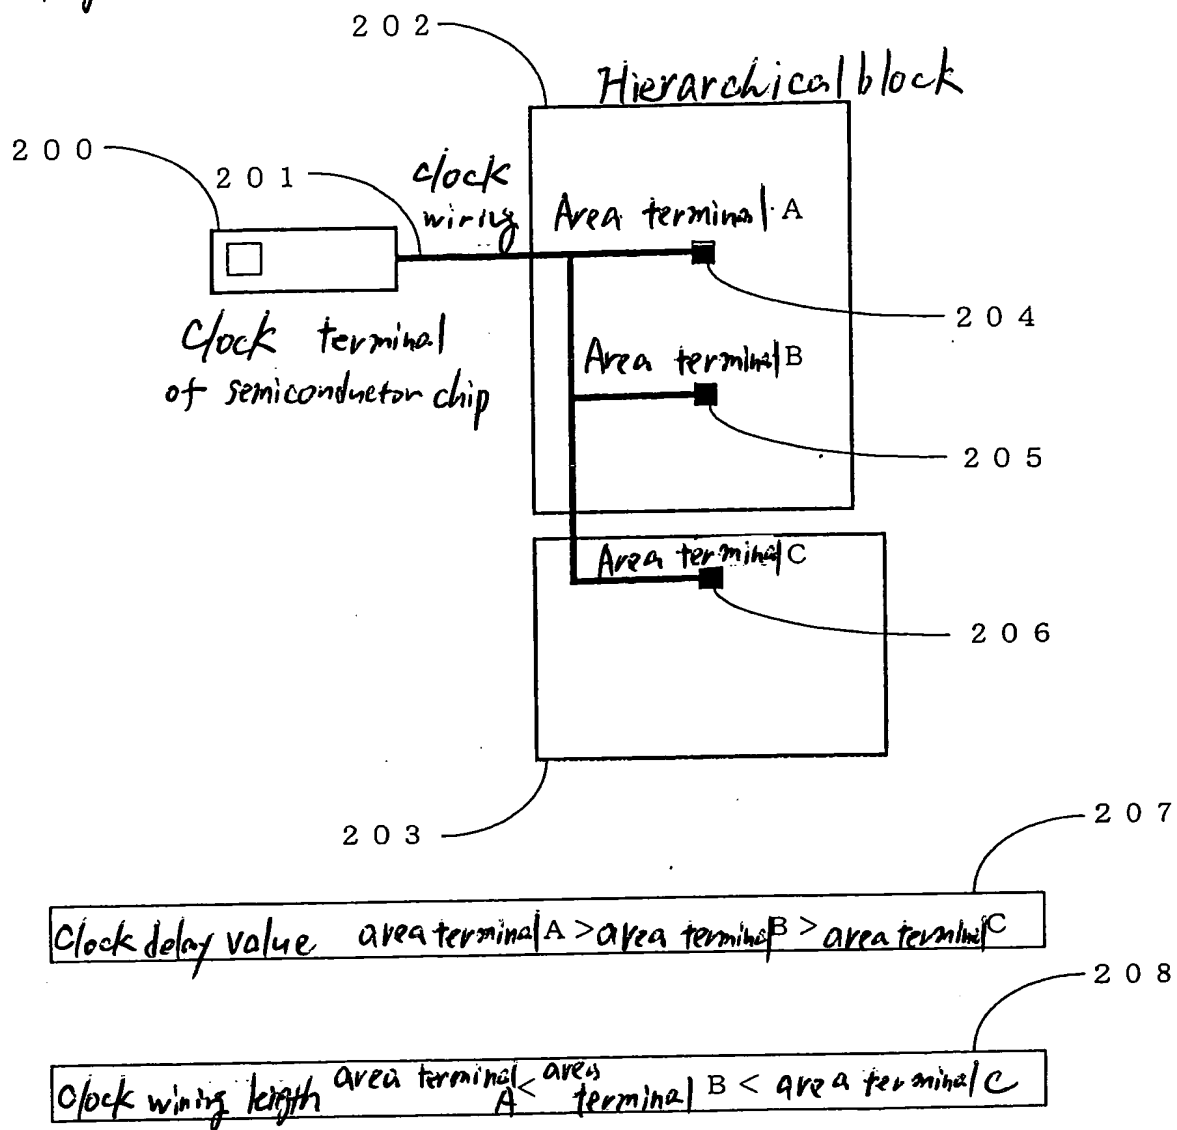 2 0 2
Hierarchical block
2 0 0
2 0 1
clock
wiring
Area terminal A
2 0 4
Clock terminal
of semiconductor chip
Area terminal B
2 0 5
Area terminal C
2 0 6
2 0 3
2 0 7
Clock delay value area terminal A > area terminal B > area terminal C
2 0 8
Clock wiring length area terminal A < area terminal B < area terminal C